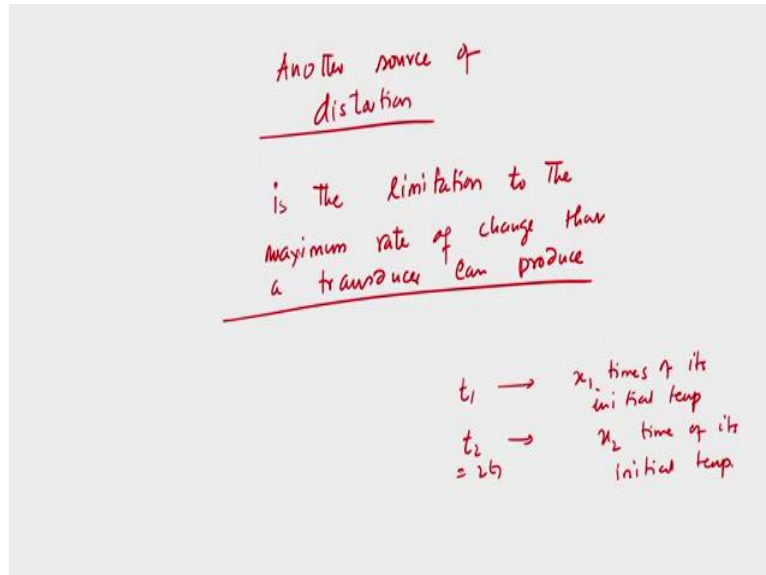 Another source of
distortion
is the limitation to the
maximum rate of change that
a transducer can produce
t₁ → x₁ times of its
initial temp
t₂ → x₂ time of its
= 2t₁ initial temp.